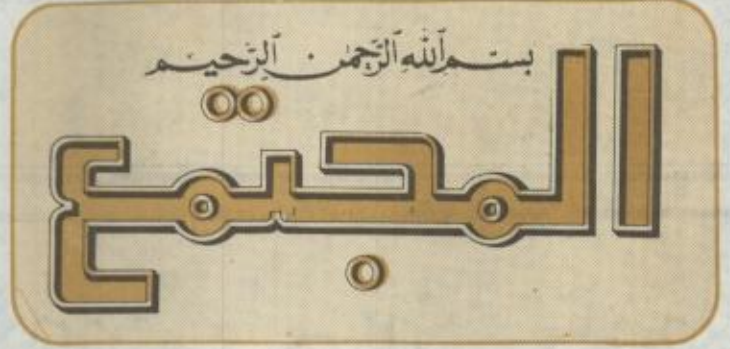 بسم الله الرحمن الرحيم
المجتمع